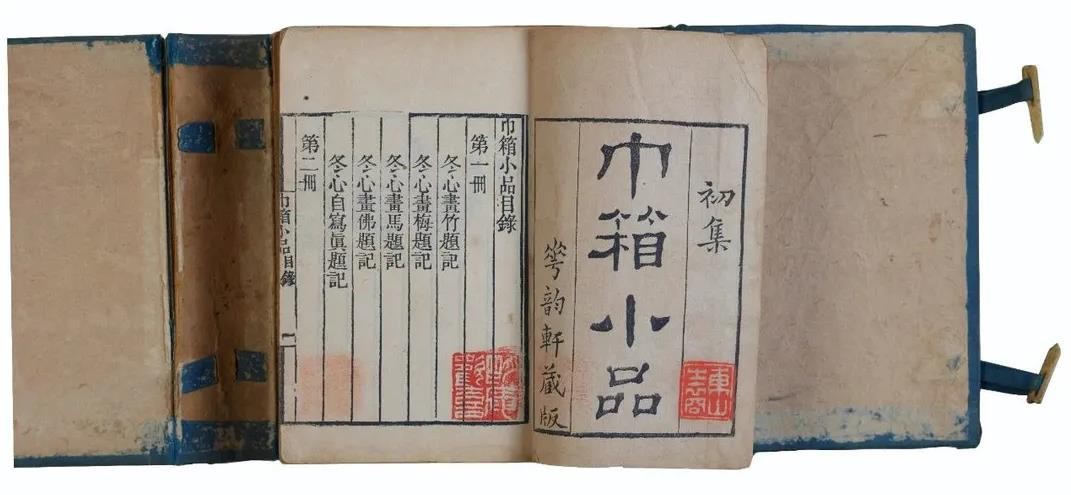 初集
巾箱小品
華韵軒藏版
巾箱小品目錄
第一冊
冬心畫竹題記
冬心畫梅題記
冬心畫馬題記
冬心畫佛題記
冬心自寫眞題記
第二冊
巾箱小品目錄
一